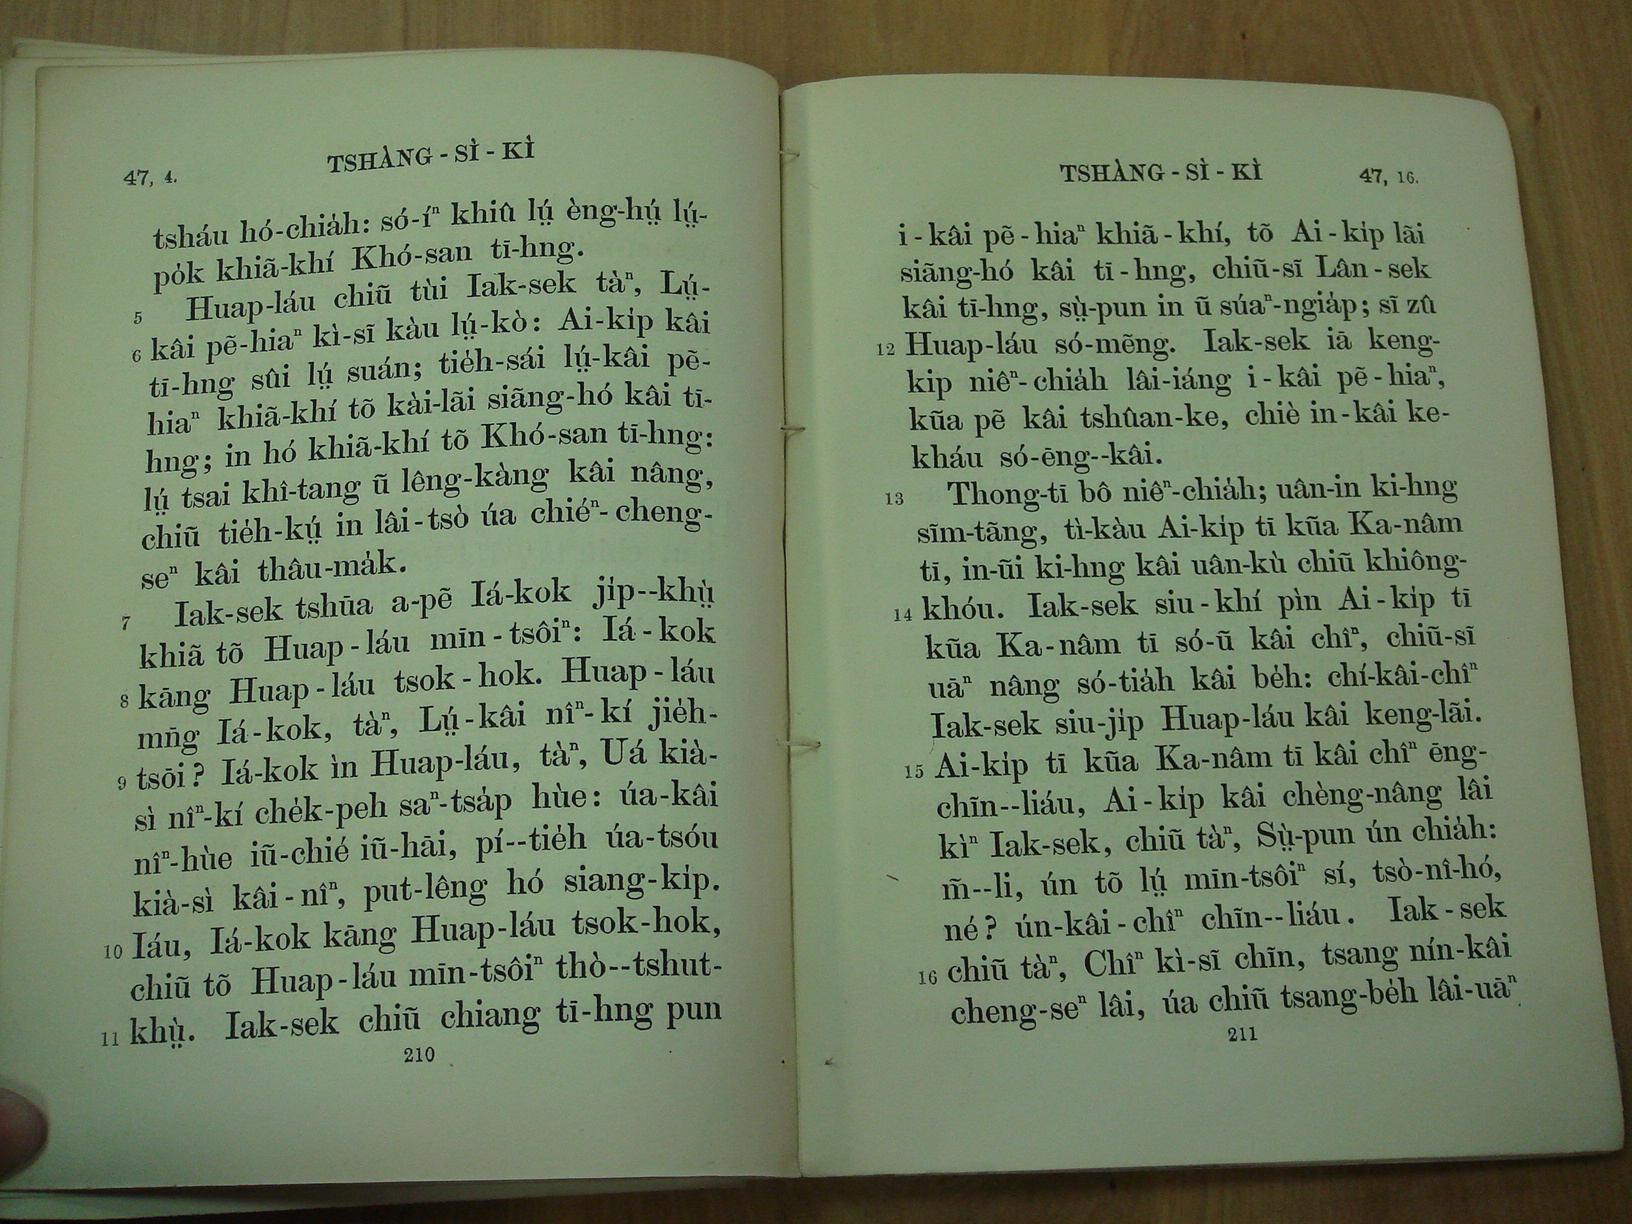 47, 4.
TSHÀNG - SÌ - KÌ
tsháu hó-chia̍h: só-íⁿ khiû lṳ́ èng-hṳ́ lṳ́-
po̍k khiã-khí Khó-san tī-hng.
5 Huap-láu chiũ tùi Iak-sek tàⁿ, Lṳ́-
6 kâi pẽ-hiaⁿ kì-sĩ kàu lṳ́-kò: Ai-ki̍p kâi
tī-hng sûi lṳ́ suán; tie̍h-sái lṳ́-kâi pẽ-
hiaⁿ khiã-khí tõ kài-lãi siãng-hó kâi tī-
hng; in hó khiã-khí tõ Khó-san tī-hng:
lṳ́ tsai khî-tang ũ lêng-kàng kâi nâng,
chiũ tie̍h-kṳ́ in lâi-tsò úa chiéⁿ-cheng-
seⁿ kâi thâu-ma̍k.
7 Iak-sek tshūa a-pẽ Iá-kok ji̍p--khṳ̀
khiã tõ Huap-láu mīn-tsôiⁿ: Iá-kok
8 kāng Huap-láu tsok-hok. Huap-láu
mn̄g Iá-kok, tàⁿ, Lṳ́-kâi nîⁿ-kí jie̍h-
9 tsōi? Iá-kok ìn Huap-láu, tàⁿ, Uá kià-
sì nîⁿ-kí che̍k-peh saⁿ-tsa̍p hùe: úa-kâi
nîⁿ-hùe iũ-chié iũ-hāi, pí--tie̍h úa-tsóu
kià-sì kâi-nîⁿ, put-lêng hó siang-ki̍p.
10 Iáu, Iá-kok kāng Huap-láu tsok-hok,
chiũ tõ Huap-láu mīn-tsôiⁿ thò--tshut-
11 khṳ̀. Iak-sek chiũ chiang tī-hng pun
210
TSHÀNG - SÌ - KÌ
47, 16.
i-kâi pẽ-hiaⁿ khiã-khí, tõ Ai-ki̍p lãi
siãng-hó kâi tī-hng, chiũ-sĩ Lân-sek
kâi tī-hng, sṳ̀-pun in ũ súaⁿ-ngia̍p; sĩ zû
12 Huap-láu só-mẽng. Iak-sek iā keng-
kip niêⁿ-chia̍h lâi-iáng i-kâi pẽ-hiaⁿ,
kũa pẽ kâi tshûan-ke, chiè in-kâi ke-
kháu só-ēng--kâi.
13 Thong-tī bô niêⁿ-chia̍h; uân-in ki-hng
sĩm-tãng, tì-kàu Ai-ki̍p tī kũa Ka-nâm
tī, in-ũi ki-hng kâi uân-kù chiũ khiông-
14 khóu. Iak-sek siu-khí pìn Ai-ki̍p tī
kũa Ka-nâm tī só-ũ kâi chîⁿ, chiũ-sĩ
uāⁿ nâng só-tia̍h kâi be̍h: chí-kâi-chîⁿ
Iak-sek siu-ji̍p Huap-láu kâi keng-lãi.
15 Ai-ki̍p tī kũa Ka-nâm tī kâi chîⁿ ēng-
chĩn--liáu, Ai-ki̍p kâi chèng-nâng lâi
kìⁿ Iak-sek, chiũ tàⁿ, Sṳ̀-pun ún chia̍h:
m̃--li, ún tõ lṳ́ mīn-tsôiⁿ sí, tsò-nî-hó,
né? ún-kâi-chîⁿ chĩn--liáu. Iak-sek
16 chiũ tàⁿ, Chîⁿ kì-sĩ chĩn, tsang nín-kâi
cheng-seⁿ lâi, úa chiũ tsang-be̍h lâi-uāⁿ
211